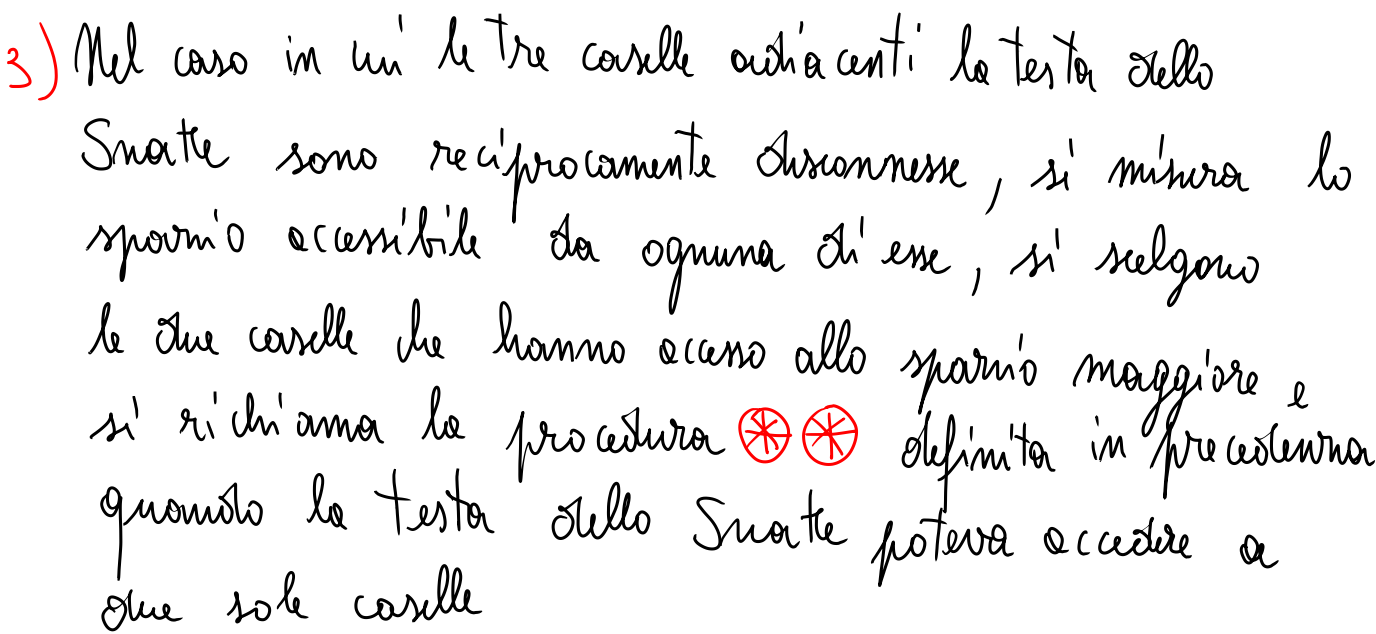 3) Nel caso in cui le tre caselle adiacenti la testa dello
Snake sono reciprocamente disconnesse, si misura lo
spazio accessibile da ognuna di esse, si scelgono
le due caselle che hanno accesso allo spazio maggiore e
si richiama la procedura ⊛ ⊛ definita in precedenza
quando la testa dello Snake poteva accedere a
due sole caselle